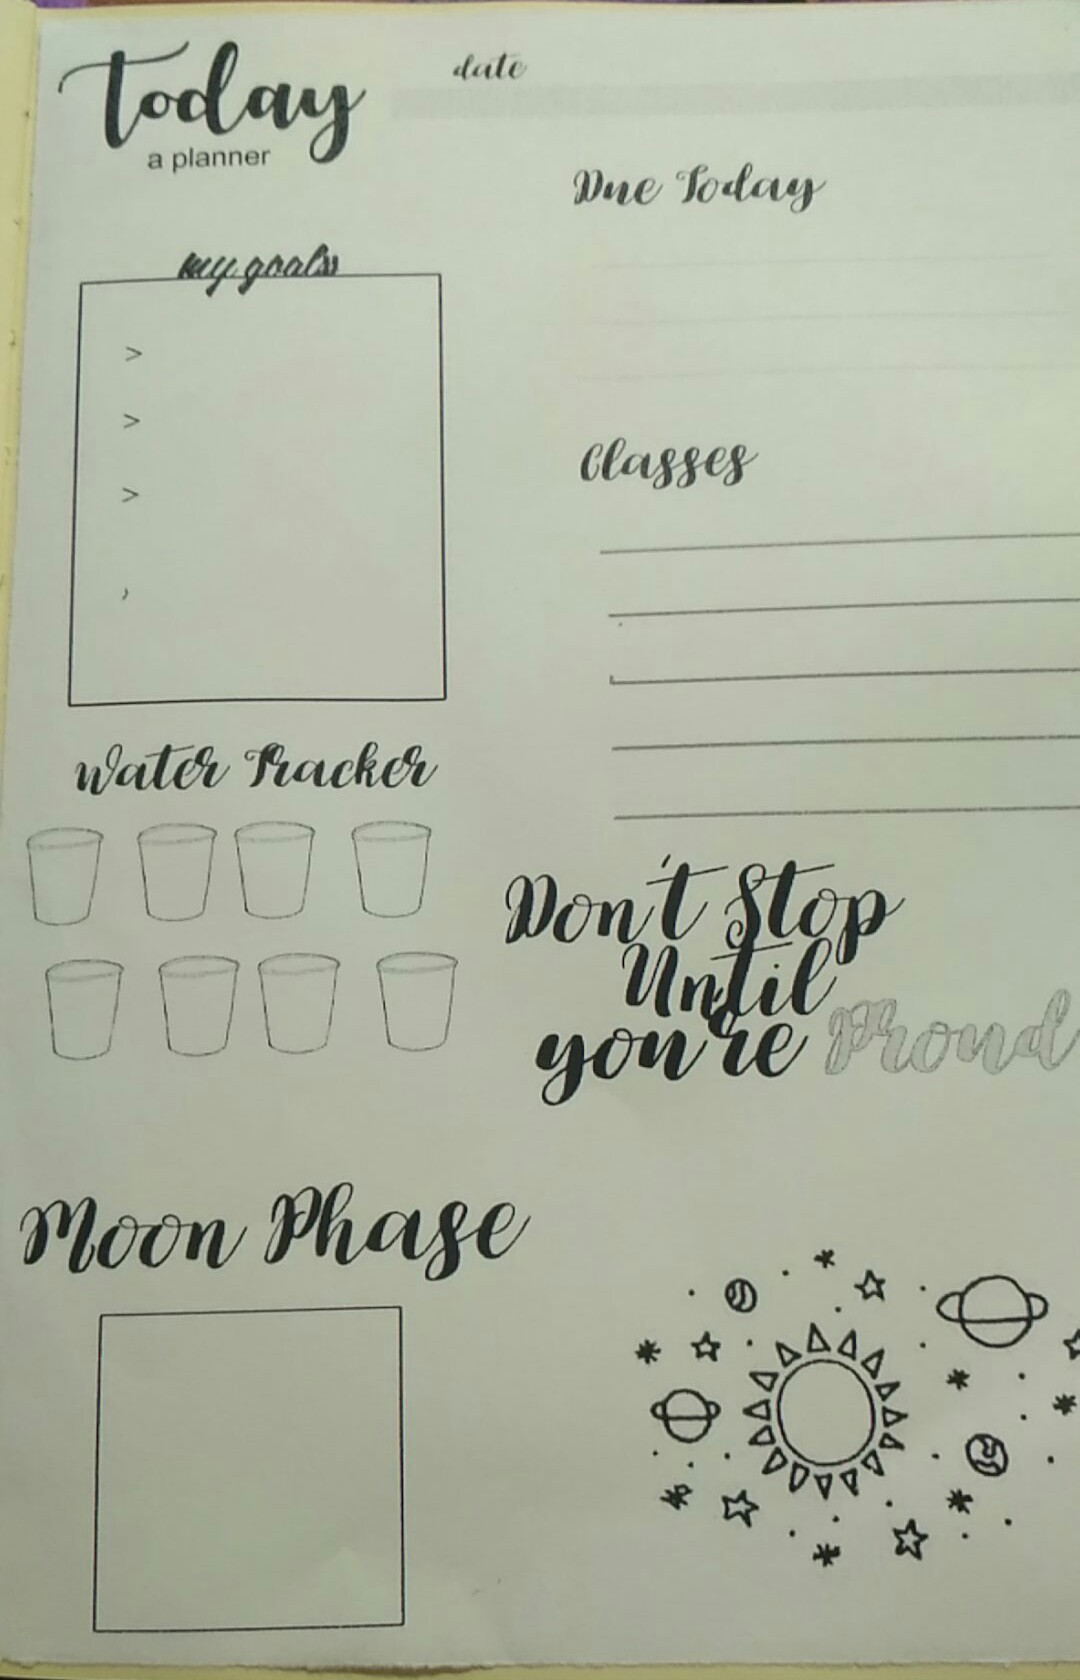 today
a planner
date
Due Today
my goals
>
>
>
Classes
Water Tracker
Don't Stop
Until
you're Proud
Moon Phase